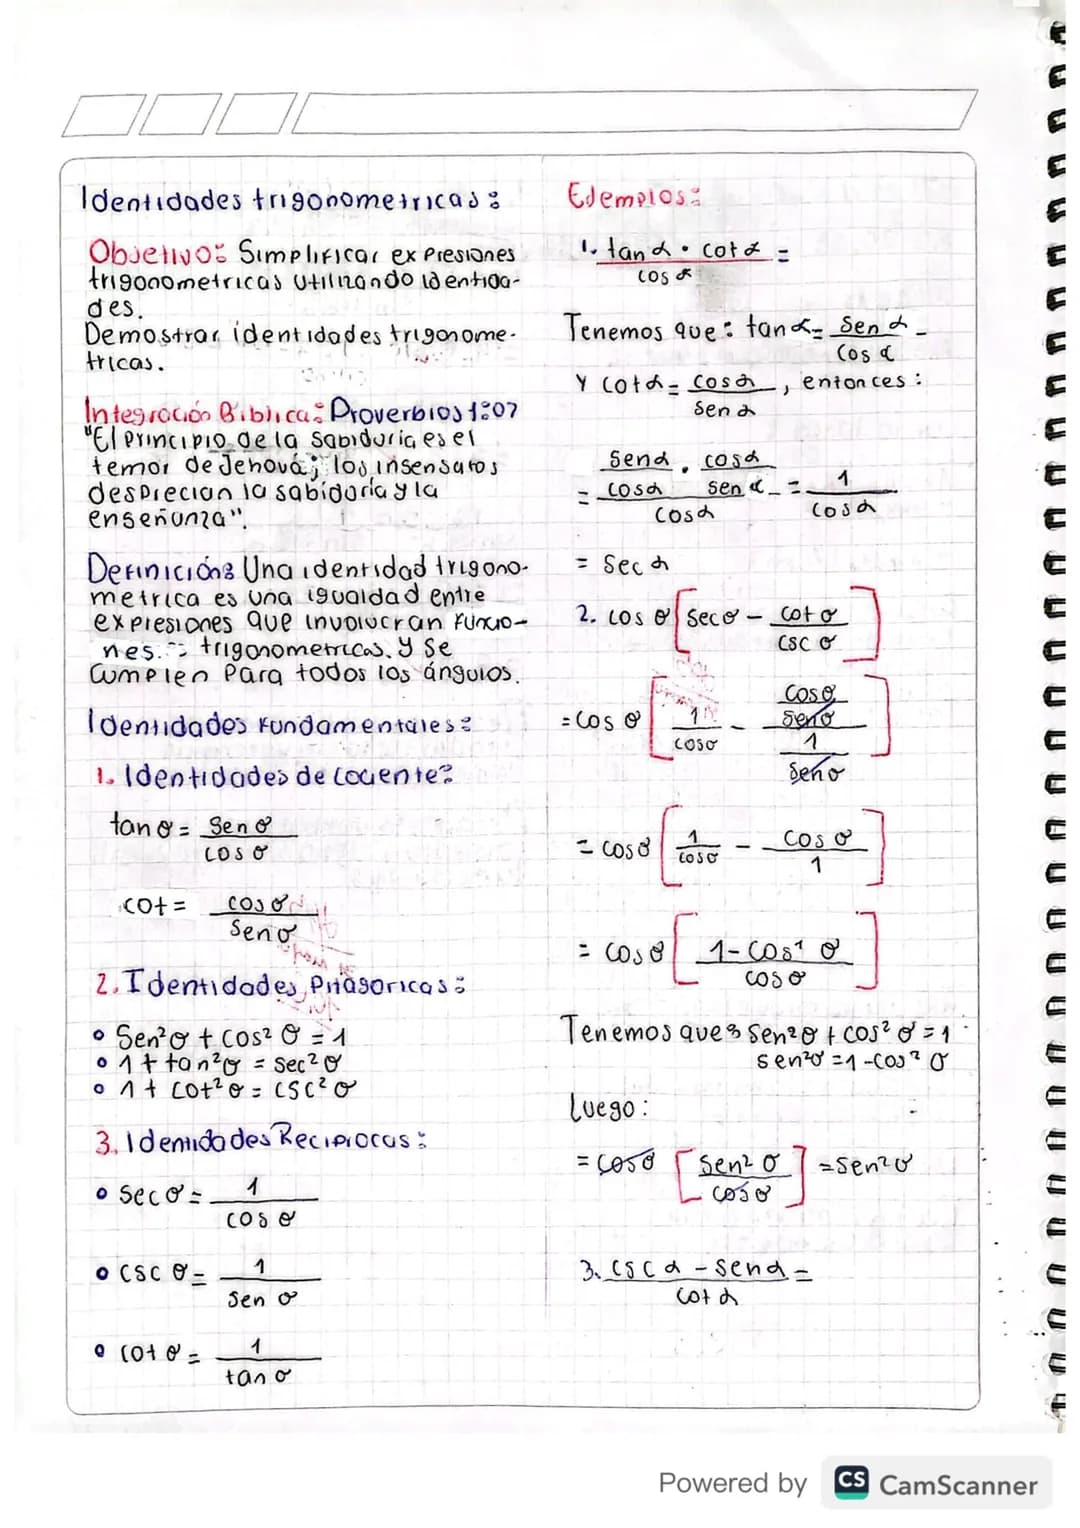 Identidades trigonometricas:
Objetivo: Simplificar expresiones
trigonometricas utilizando identida-
des.
Demostrar identidades trigonome-
tricas.
Integración Biblica: Proverbios 1:07
"El principio de la sabiduria es el
temor de Jehová; los insensatos
desprecian la sabiduria y la
enseñanza".
Definición: Una identidad trigono-
metrica es una igualdad entre
expresiones que involucran funcio-
nes trigonometricas. y se
cumplen para todos los ángulos.
Identidades fundamentales:
1. Identidades de cociente:
tan θ = Sen θ
cos θ
cot = cos θ
Sen θ
2. Identidades Pitagoricas:
• Sen²θ + cos² θ = 1
• 1 + tan²θ = Sec² θ
• 1 + cot²θ = csc² θ
3. Identidades Reciprocas:
• Sec θ = 1
cos θ
• csc θ = 1
Sen θ
• cot θ = 1
tan θ
Ejemplos:
1. tan α • cot α =
cos α
Tenemos que: tan α = Sen α
cos α
Y cot α = cos α, entonces:
Sen α
Sen α . cos α
= cos α Sen α = 1
cos α cos α
= Sec α
2. cos θ [Sec θ - cot θ]
csc θ
cos θ
= cos θ [1 - Sen θ]
cos θ 1
Sen θ
= cos θ [1 - cos θ]
cos θ 1
= cos θ [1 - cos² θ]
cos θ
Tenemos que: Sen²θ + cos² θ = 1
Sen²θ = 1 - cos² θ
Luego:
= cos θ [Sen² θ] = Sen² θ
cos θ
3. csc α - Sen α =
cot α
Powered by CS CamScanner